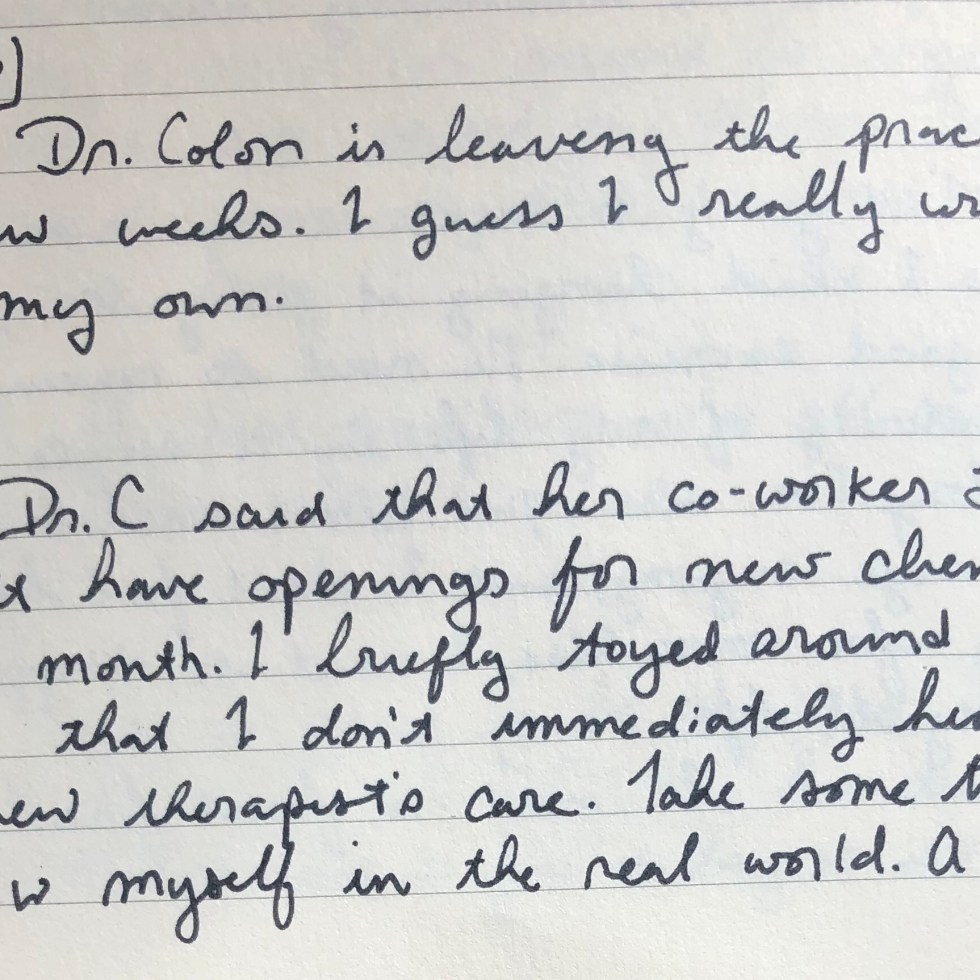 Dr. Colon is leaving the prac
w weeks. I guess I really
my own.
Dr. C said that her co-worker
have openings for new clien
month. I briefly toyed around
that I don't immediately
ew therapist's care. Take some t
w myself in the real world. A